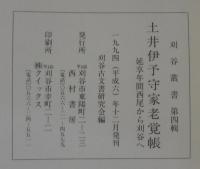 刈谷叢書 第四輯
土井伊予守家老覚帳
延享年間西尾から刈谷へ
一九九四(平成六)年十二月発刊
刈谷古文書研究会編
発行所
刈谷市東陽町二
西村書房
印刷所
刈谷市幸町二
㈱クイックス